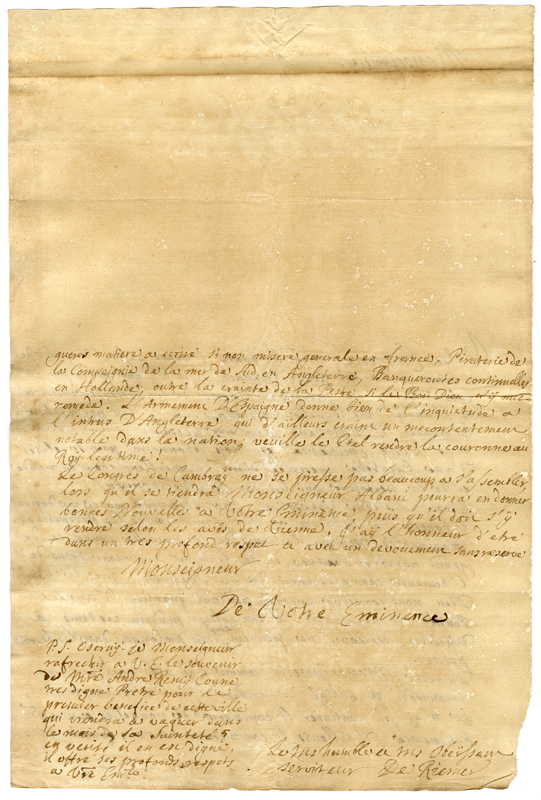 gueres matiere a ecrire si non misere generale en france, Piraterie de
la Compeignie de la mer du Sud en Angleterre, Banqueroutes continuelles
en Hollande, outre la crainte de la Peste si le Bon Dieu n'y met
remede. L'Armement D'Espaigne donne bien de l'inquietude a
l'intrus D'Angleterre qui d'ailleurs craint un mecontentement
notable dans la nation, veuille le Ciel rendre la couronne au
Roy legitime!
Le Congrés de Cambray ne se presse pas beaucoup a s'assembler,
lors qu'il se tiendra Monseigneur Albani pourra en donner
bonnes Nouvelles a Votre Eminence puis qu'il doit s'y
rendre selon les avis de Vienne, j'ay l'honneur d'etre
dans un tres profond respet et avec un devouement sans reserve
Monseigneur
De Votre Eminence
P.S. Oseray-je Monseigneur
rafrechir a V. E. le souvenir
de Mtre André Remis
tres digne Pretre pour le
premier benefice de cette ville
qui viendra a vaquer dans
le mois de Sa Sainteté
en verité il en est digne,
il offre ses profonds respets
a Vtre Emce.
Le tres humble et tres Obeissant
serviteur De